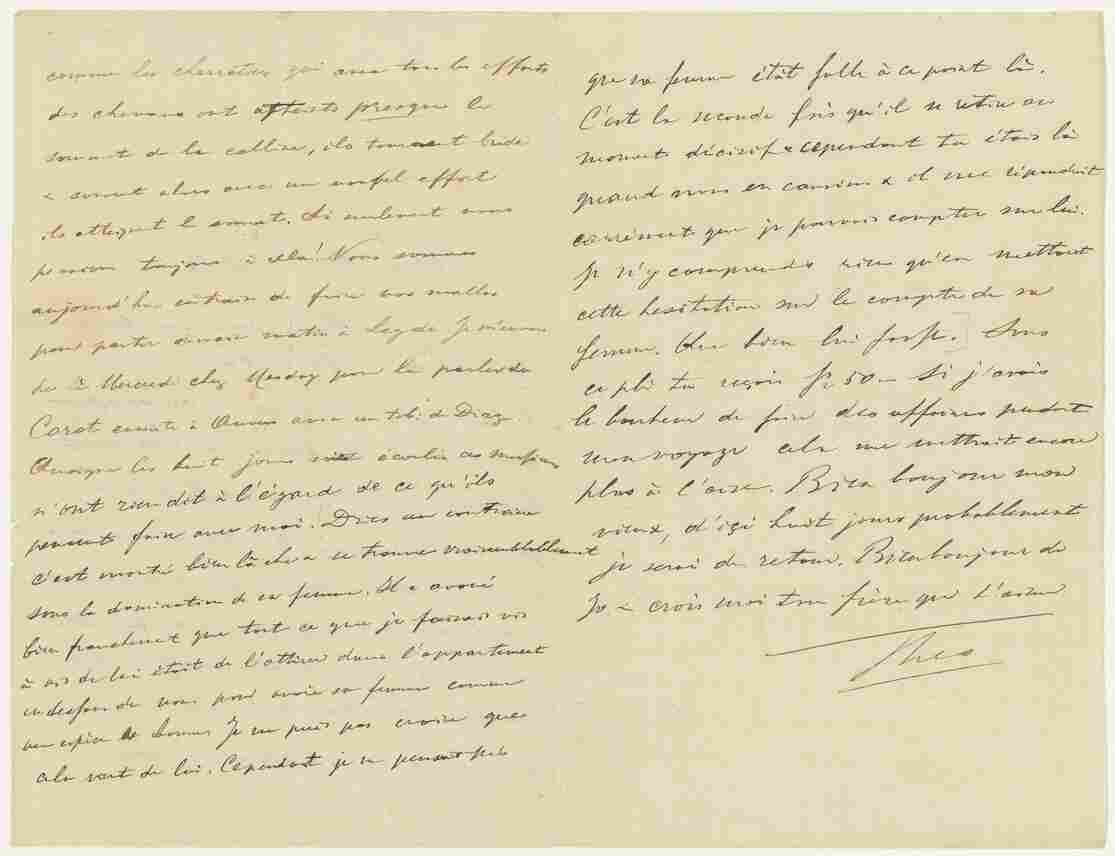 comme les charretiers qui avec tous les efforts
des chevaux ont atteints presque le
sommet de la colline, ils tournent bride
& souvent alors avec un effort
ils atteignent le sommet. Si seulement nous
pensions toujours à cela! Nous sommes
aujourd'hui en train de faire nos malles
pour partir demain matin à Leyde. Je
Mercredi chez Mesdag pour lui parler du
Corot ensuite à Anvers avec un tabl. de Diaz.
Quoique les huit jours soient écoulés ces messieurs
n'ont rien dit à l'égard de ce qu'ils
pensent faire avec moi. Dries au contraire
s'est montré bien lâche & se trouve vraisemblablement
sous la domination de sa femme. Il a avoué
bien franchement que tout ce que je faisais vis
à vis de lui était de l'attirer dans l'appartement
en dessous de nous pour avoir sa femme comme
une espèce de bonne. Je ne puis pas croire que
cela vient de lui. Cependant je ne pensais pas
que sa femme était folle à ce point là.
C'est la seconde fois qu'il se retire au
moment décisif & cependant tu étais là
quand nous en causions & il me répondait
carrément que je pouvais compter sur lui.
Je n'y comprends rien qu'en mettant
cette hesitation sur le compte de sa
femme. Que bien lui fasse. Sous
ce pli tu reçois fr 50 – Si j'avais
le bonheur de faire des affaires pendant
mon voyage cela me mettrait encore
plus à l'aise. Bien bonjour mon
vieux, d'ici huit jours probablement
je serai de retour. Bien bonjour de
Jo & crois moi ton frère qui t'aime
Theo